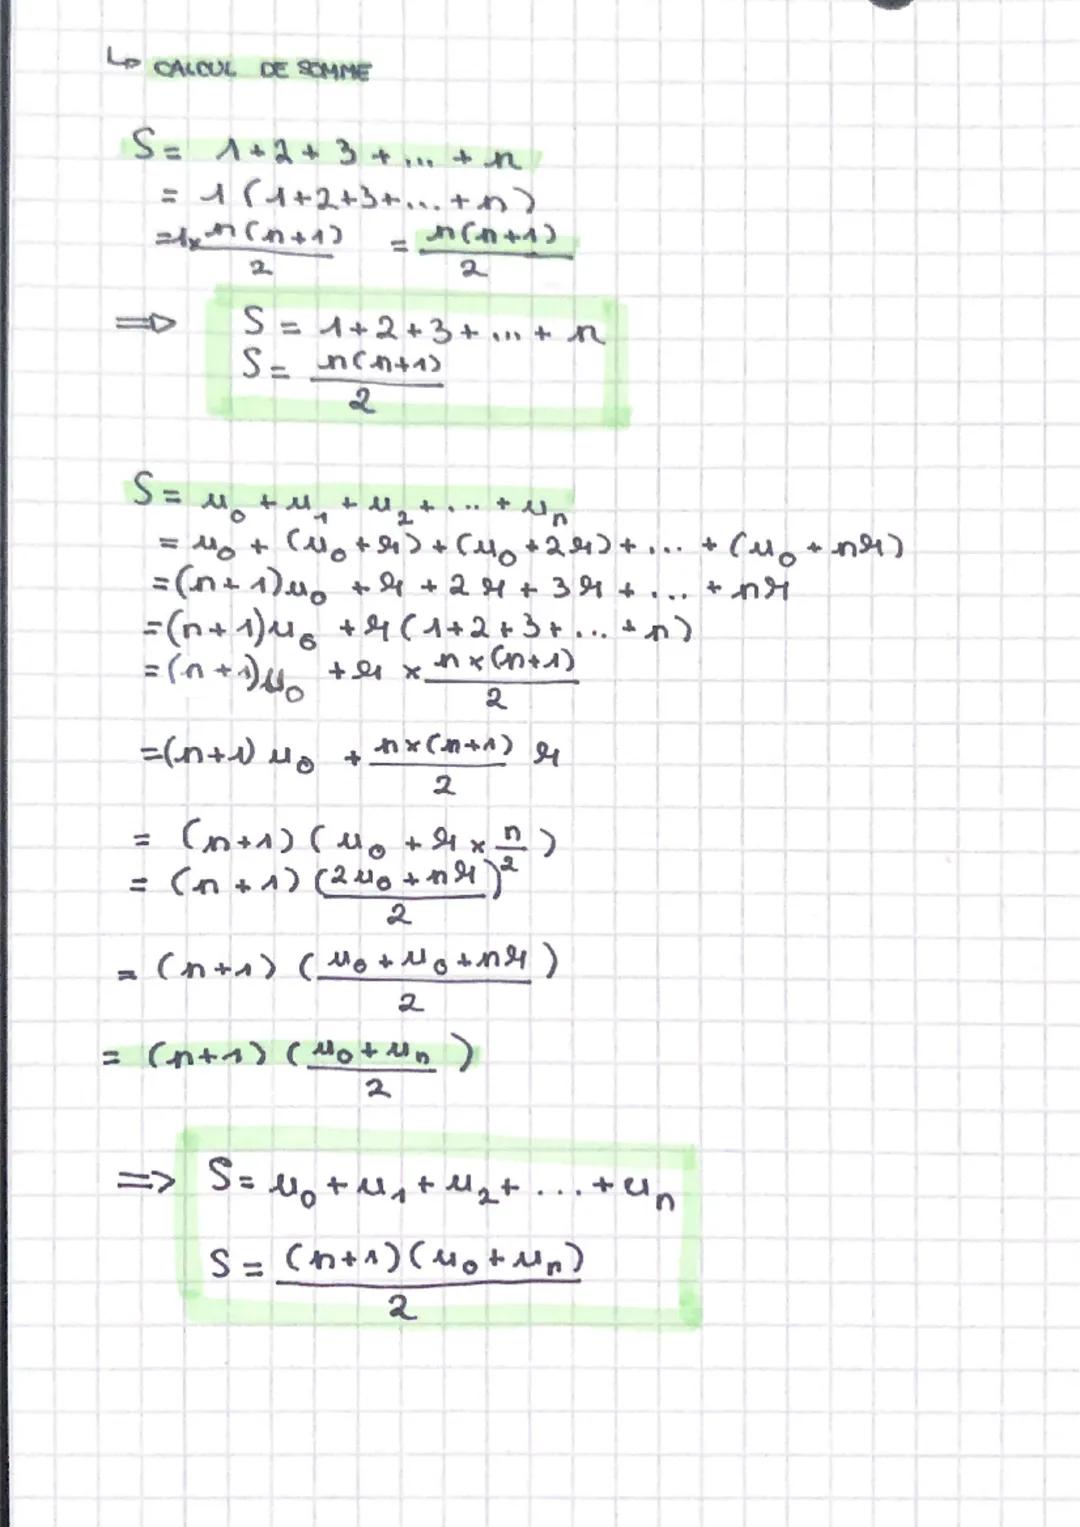 ↳ CALCUL DE SOMME
S = 1+2+3+...+n
= 1(1+2+3+...+n)
=1× n(n+1)/2 = n(n+1)/2
⟹ S = 1+2+3+...+n
S = n(n+1)/2
S = u₀ + u₁ + u₂ + ... + uₙ
= u₀ + (u₀ + r) + (u₀ + 2r) + ... + (u₀ + nr)
= (n+1)u₀ + r + 2r + 3r + ... + nr
= (n+1)u₀ + r(1+2+3+...+n)
= (n+1)u₀ + r × n×(n+1)/2
= (n+1)u₀ + n×(n+1)/2 r
= (n+1)(u₀ + r × n/2)
= (n+1)(2u₀ + nr/2)
= (n+1)(u₀ + u₀ + nr/2)
= (n+1)(u₀ + uₙ/2)
=> S = u₀ + u₁ + u₂ + ... + uₙ
S = (n+1)(u₀ + uₙ)/2